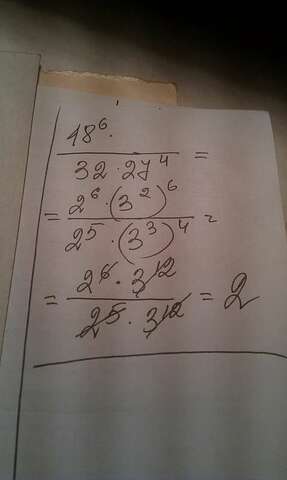 18⁶·
/ 32 · 27⁴ =
= 2⁶ · (3²)⁶ / 2⁵ · (3³)⁴ =
= 2⁶ · 3¹² / 2⁵ · 3¹² = 2